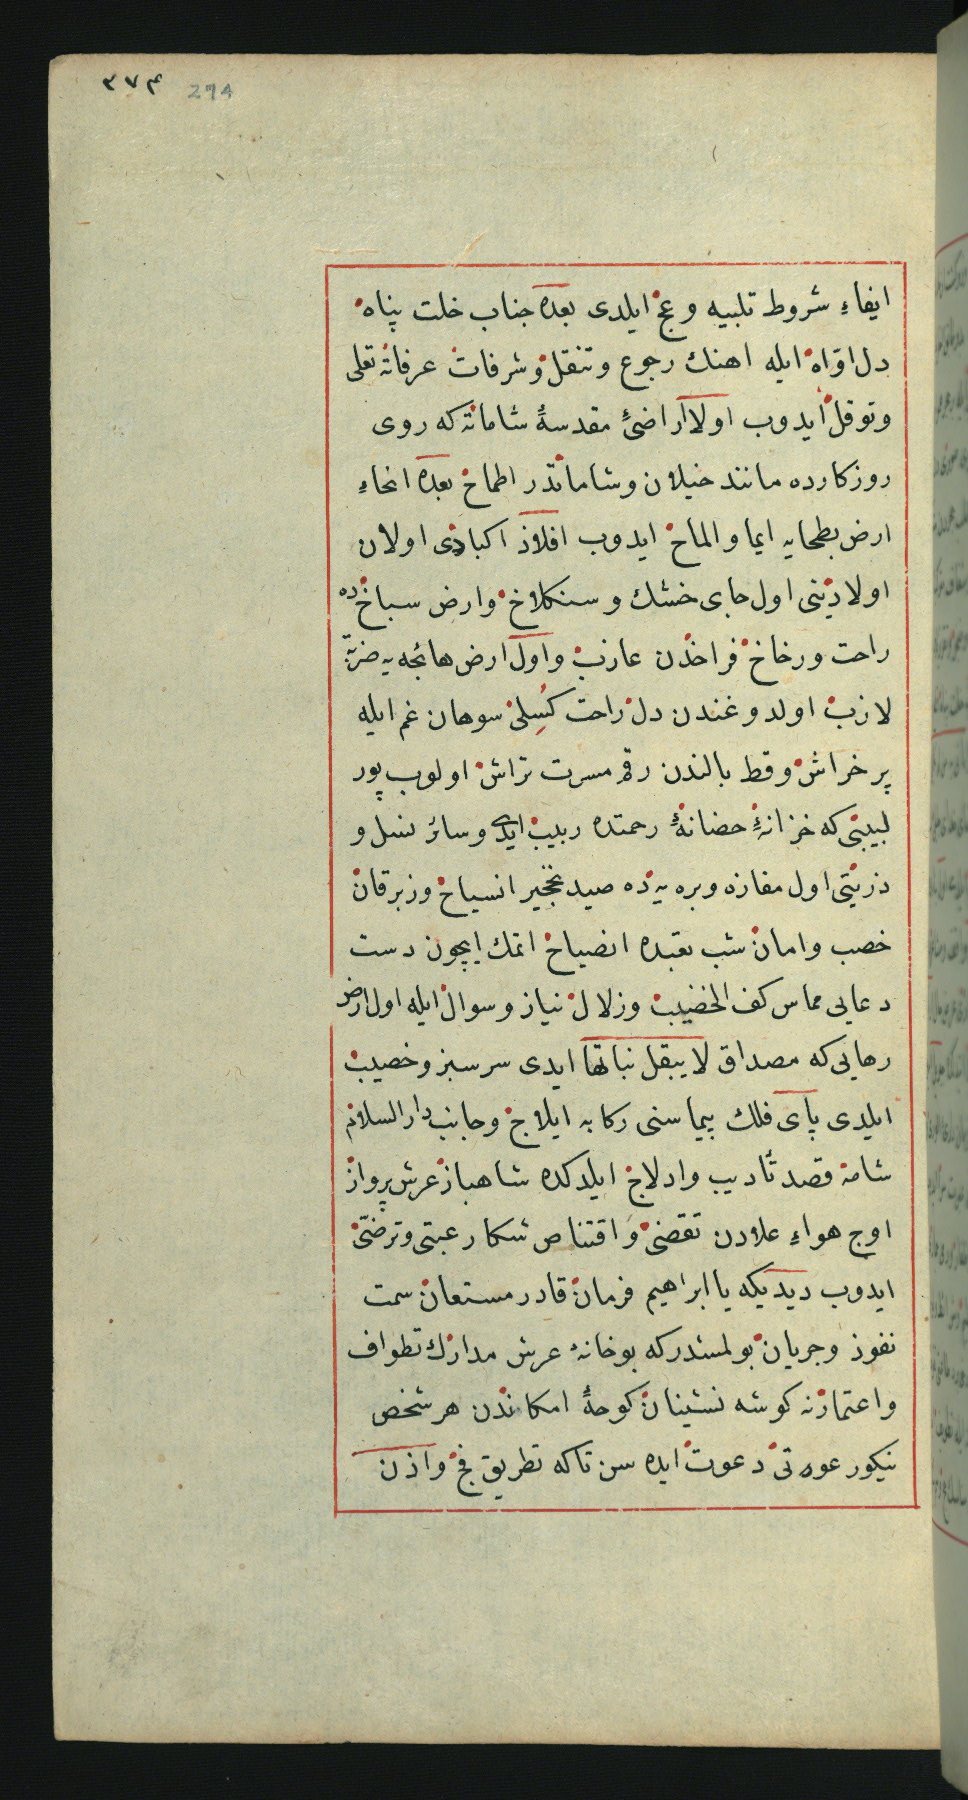 ٢٧٤ 274
ايفاءِ شروط تلبيه و عج ايلدى بعده جناب خلت پناه
دل اوّاه ايله اهنك رجوع و تنقل و شرفات عرفاته تعلى
وتوقل ايدوب اولا اراضئ مقدسۀ شاماته كه روى
روزكارده مانند خيلان و شاماتدر اطماح بعده انحاءِ
ارض بطحايه ايما والماح ايدوب افلاذ اكبادى اولان
اولادينى اول جاى خشك و سنكلاخ وارض سباخده
راحت ورخاخ فراخدن عازب واول ارض هائجه يه ضربة
لازب اولدوغندن دل راحت كسلى سوهان غم ايله
پر خراش وقط بالندن رقم مسرت تراش اولوب پور
لبيبنى كه خزانۀ حضانۀ رحمتده ربيب ايدى وسائر نسل و
ذريتى اول مفازه وبريه ده صيد نخجير انسياح وزبرقان
خصب وامان شب تعبده انضياح اتمك ايچون دست
دعايى مماس كف الخضيب وزلال نياز وسوال ايله اول ارض
رهايى كه مصداق لا يبقل نباتها ايدى سرسبز وخصيب
ايلدى پاى فلك پيماسنى ركابه ايلاج وجانب دار السلام
شامه قصد تأديب وادلاج ايلدكده شاهباز عرش پرواز
اوج هواءِ علادن تقضى و اقتناص شكار عبتى وترضّى
ايدوب ديديكه يا ابراهيم فرمان قادر مستعان سمت
نفوذ وجريان بولمشدركه بوخانۀ عرش مدارك تطواف
واعتمارنه كوشه نشينان كوحۀ امكاندن هر شخص
نيكور عورتى دعوت ايده سن تاكه تطريق فج واذن